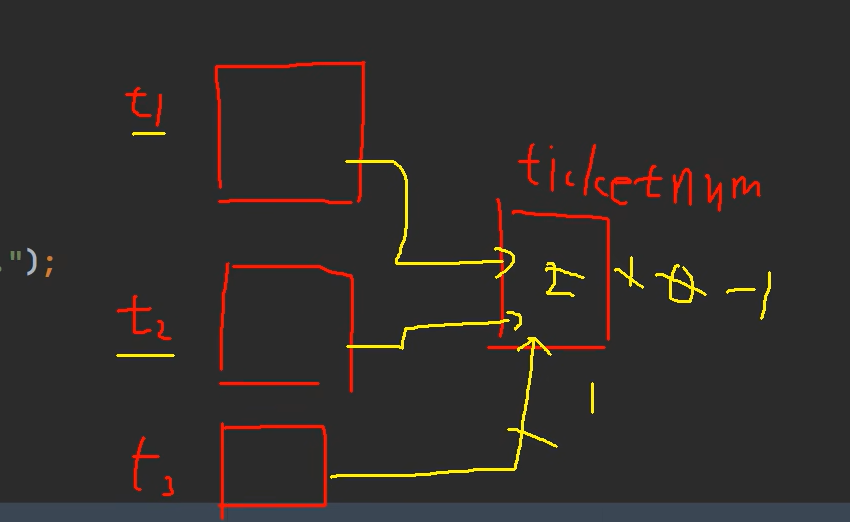 t1
ticketnum
");
2 1 0 -1
t2
1
t3